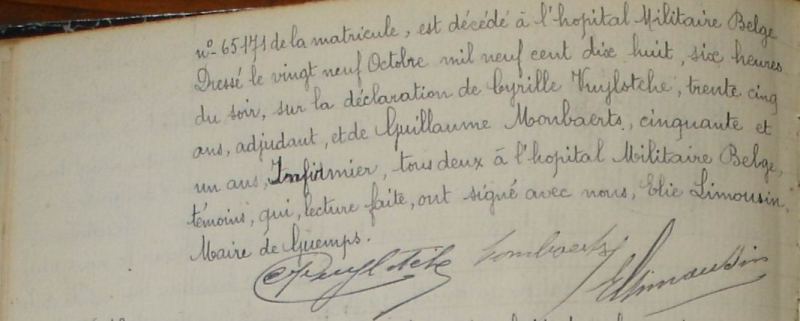 nº 65171 de la matricule, est décédé à l'hopital Militaire Belge
Dressé le vingt neuf Octobre mil neuf cent dix huit, six heures
du soir, sur la déclaration de Cyrille Vuylstche, trente cinq
ans, adjudant, et de Guillaume Monbaerts, cinquante et
un ans, Infirmier, tous deux à l'hopital Militaire Belge,
témoins, qui, lecture faite, ont signé avec nous, Elie Limousin,
Maire de Guemps.
CVuylsteke Lombaerts ELimousin